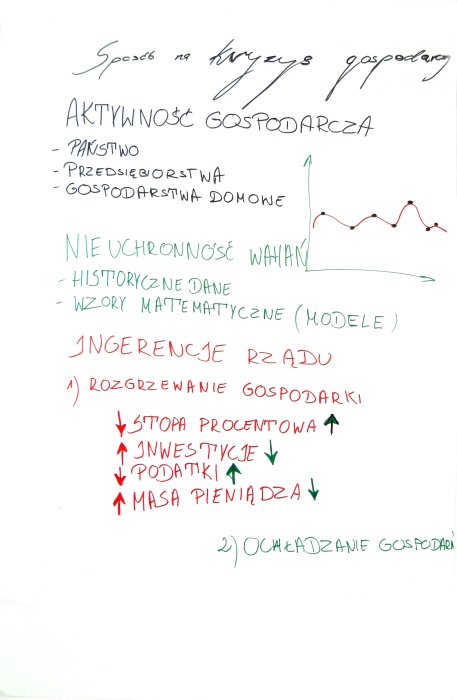 Sposób na kryzys gospodarczy
AKTYWNOŚĆ GOSPODARCZA
- PAŃSTWO
- PRZEDSIĘBIORSTWA
- GOSPODARSTWA DOMOWE
NIEUCHRONNOŚĆ WAHAŃ
- HISTORYCZNE DANE
- WZORY MATEMATYCZNE (MODELE)
INGERENCJE RZĄDU
1) ROZGRZEWANIE GOSPODARKI
↓ STOPA PROCENTOWA ↑
↑ INWESTYCJE ↓
↓ PODATKI ↑
↑ MASA PIENIĄDZA ↓
2) OCHŁADZANIE GOSPODARKI